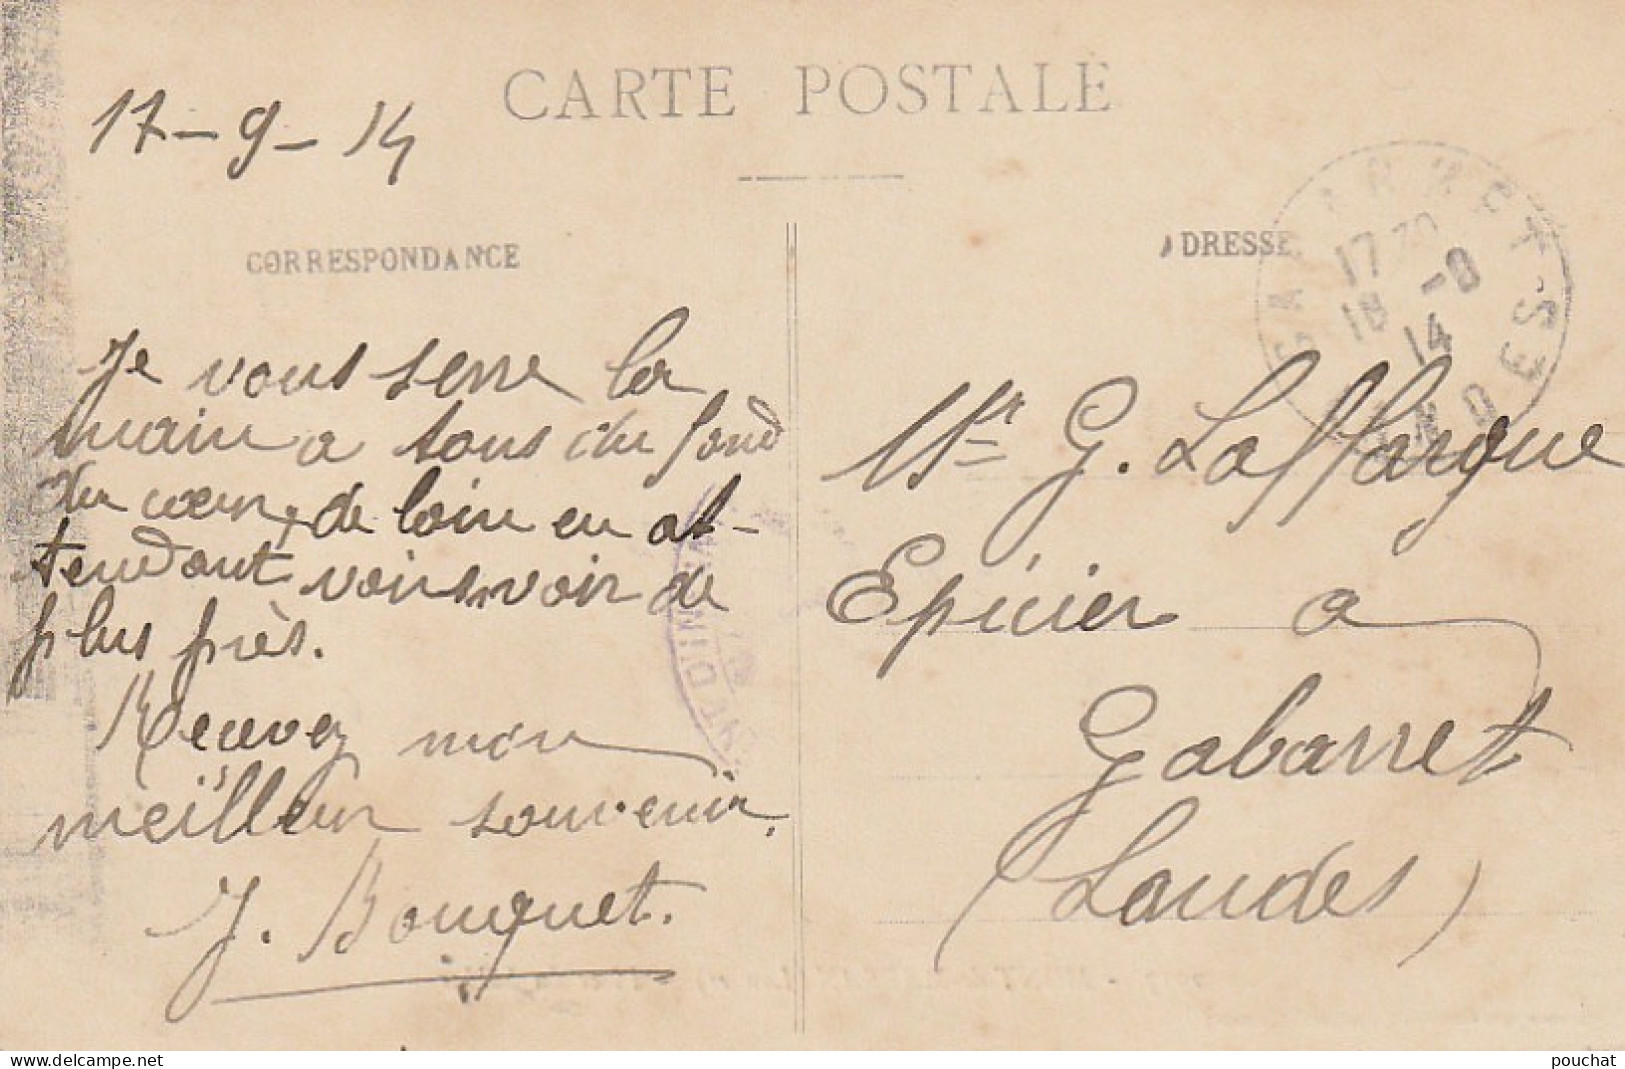 CARTE POSTALE
17-9-14
CORRESPONDANCE
Je vous serre la
main a tous du fond
du cœur, de loin en at-
tendant vous voir de
plus près.
Recevez mon
meilleur souvenir,
J. Bouquet.
ADRESSE
GABARRET
LANDES
17 30
18 -9
14
Mr G. Laffargue
Epicier a
Gabarret
(Landes)
NT D'IN
pouchat